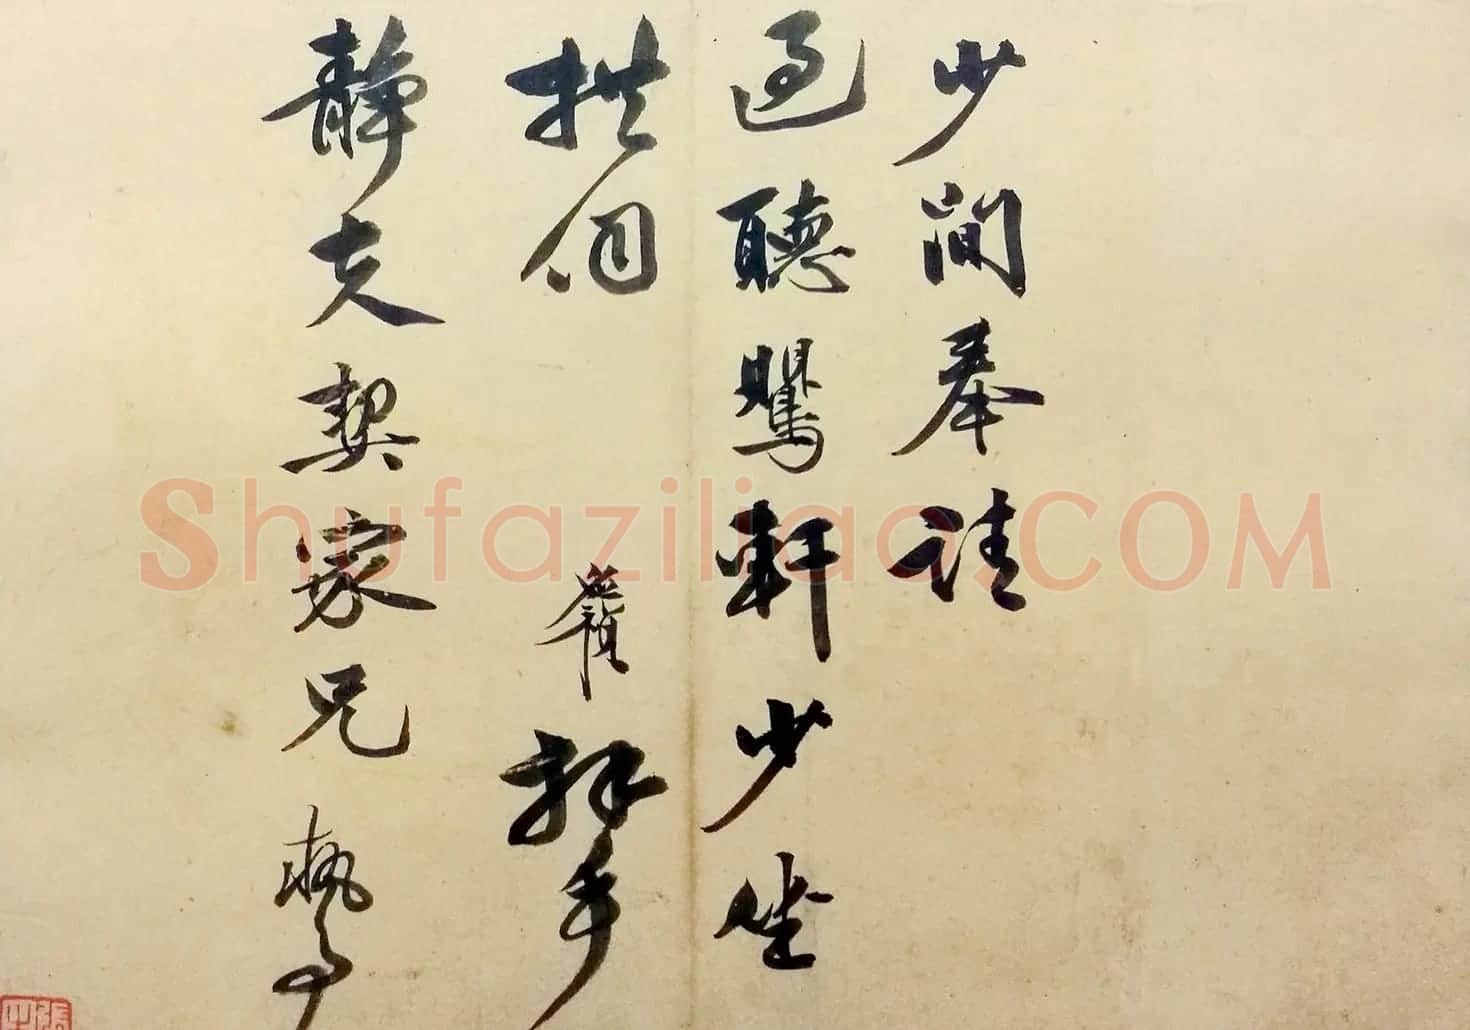 少間奉請
過聽鸎軒少坐
拱伺 應禎拜手
靜夫契家兄 執事
Shufaziliao.COM